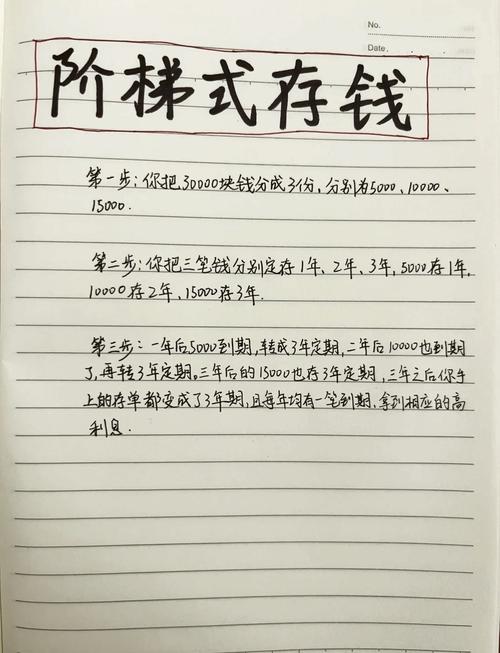 No.
Date.
阶梯式存钱
第一步:你把30000块钱分成3份,分别为5000、10000、
15000.
第二步:你把三笔钱分别定存1年、2年、3年,5000存1年,
10000存2年、15000存3年.
第三步:一年后5000到期,转成了3年定期,二年后10000也到期
了,再转3年定期。三年后的15000也存3年定期,三年之后你手
上的存单都变成了3年期,且每年均有一笔到期,拿到相应的高
利息.